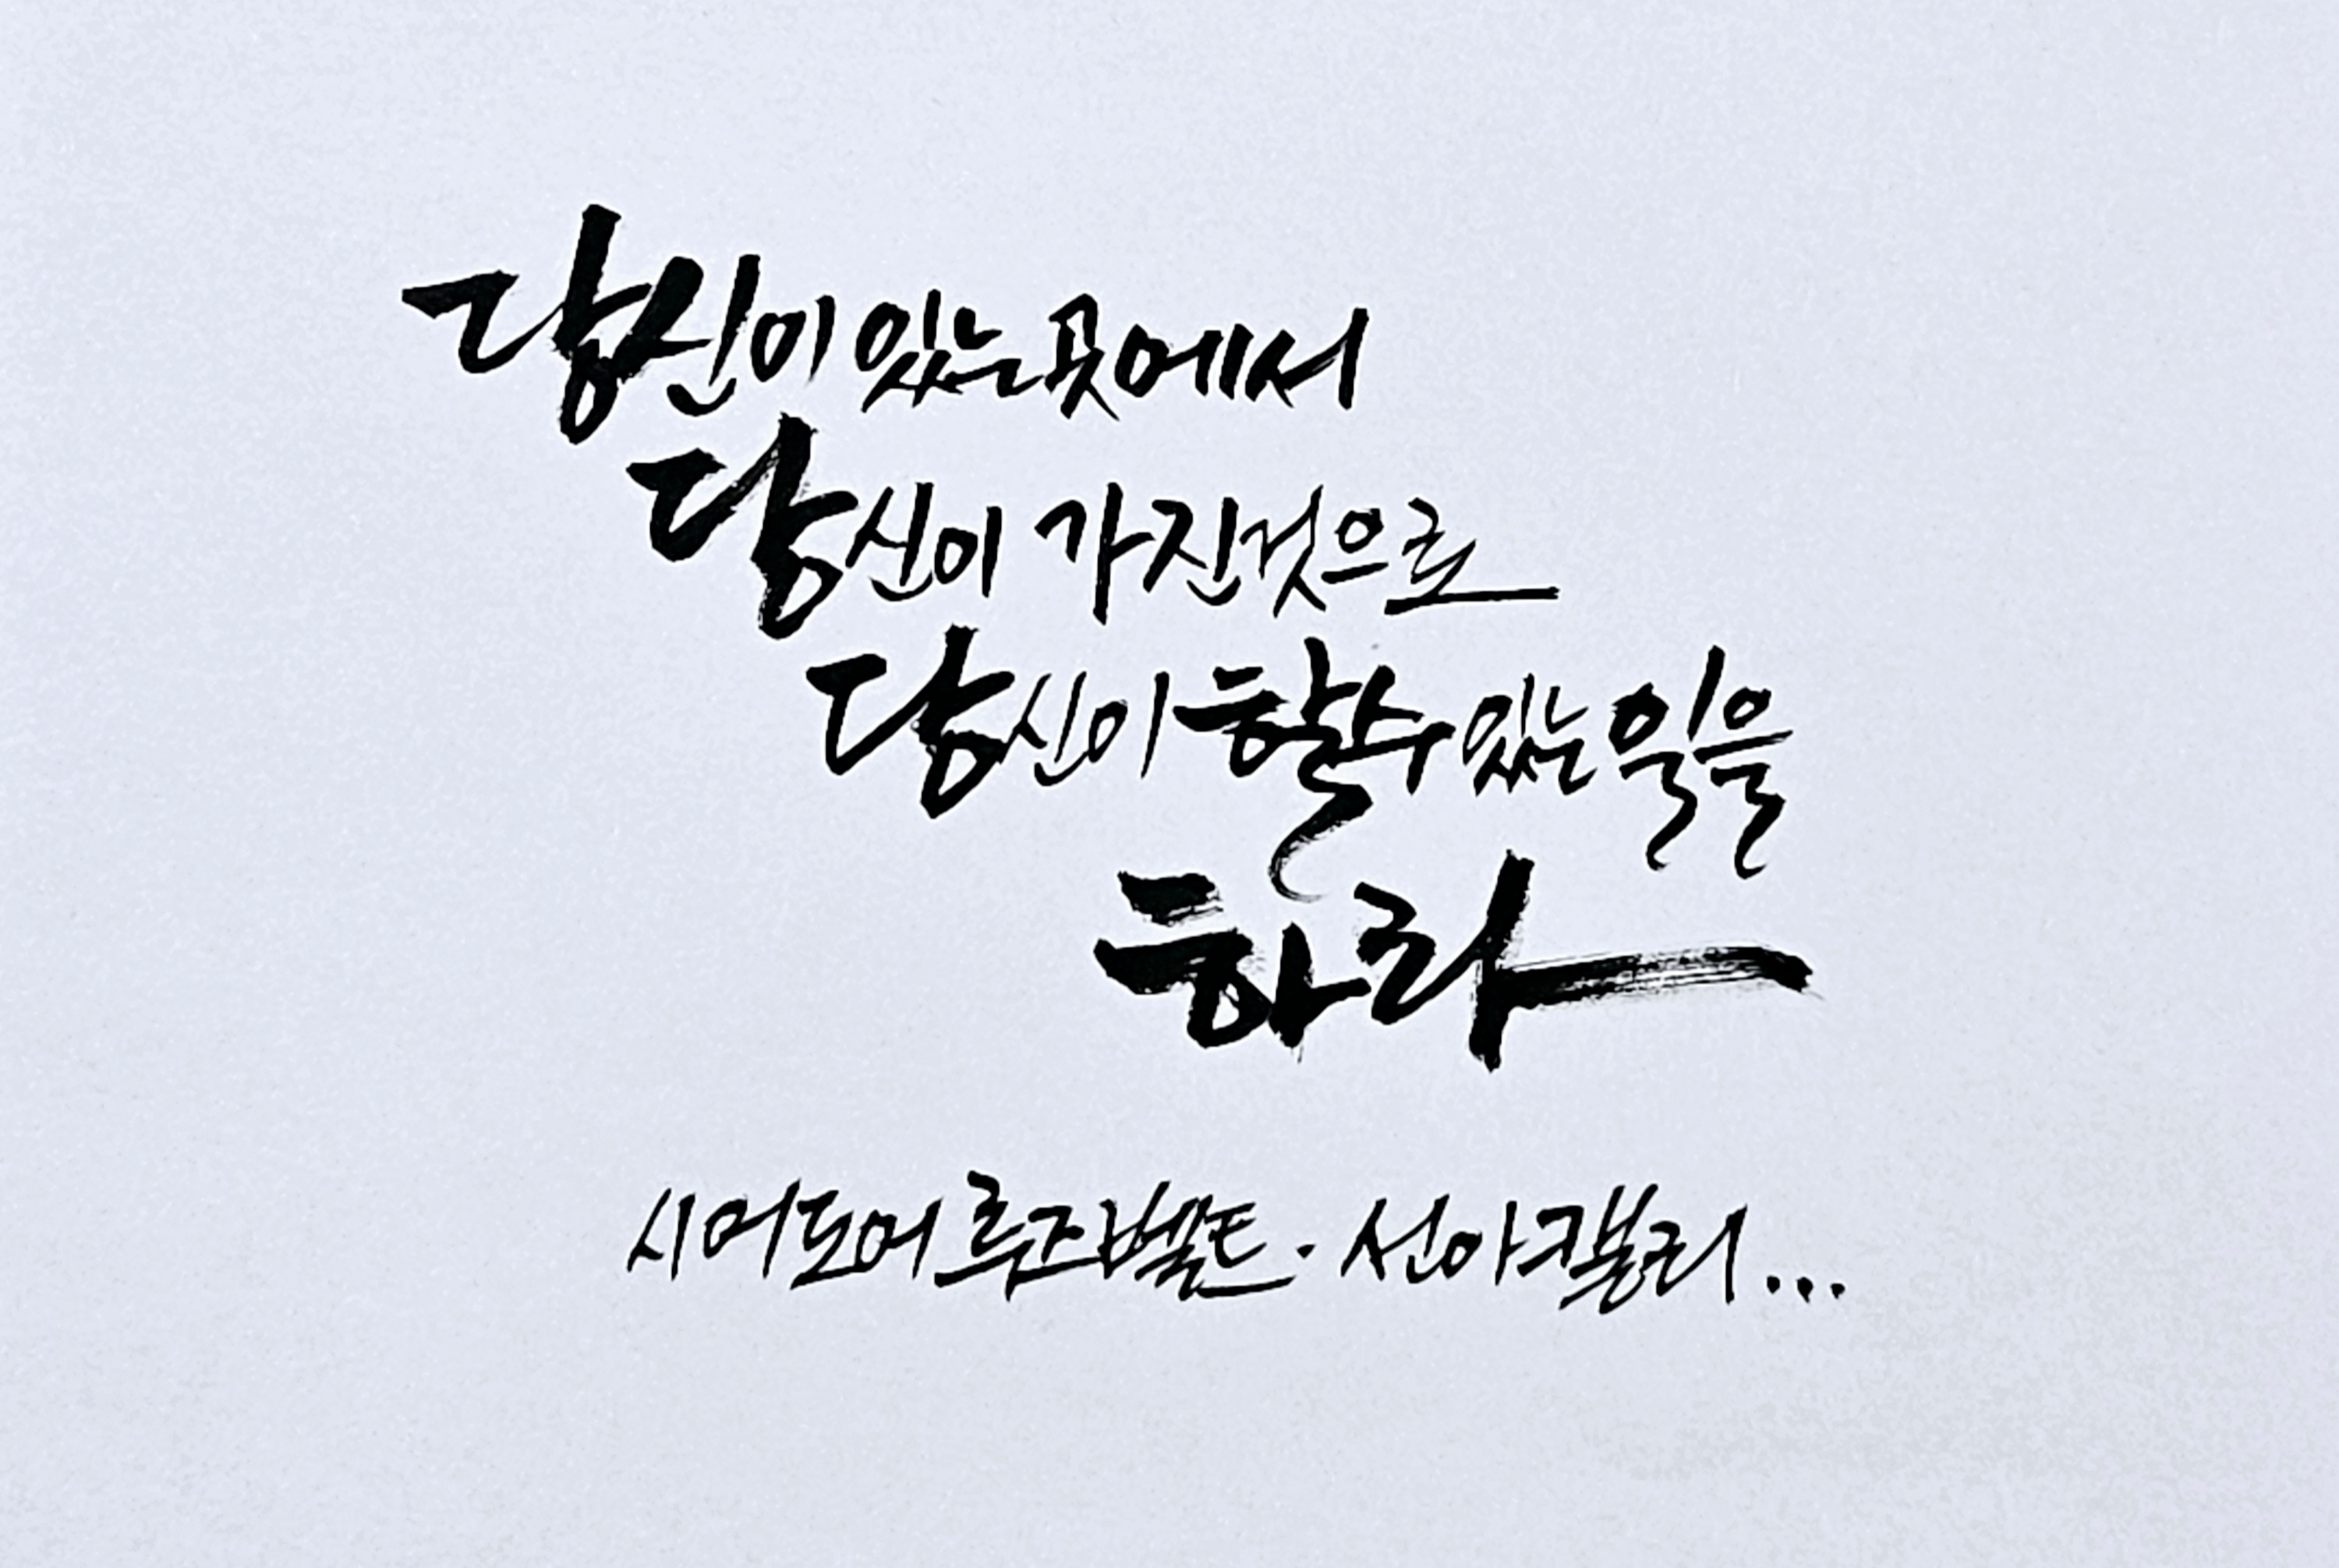 당신이 있는 곳에서
당신이 가진것으로
당신이 할수 있는 일을
하라
시어도어 루즈벨트. 선아캘리...